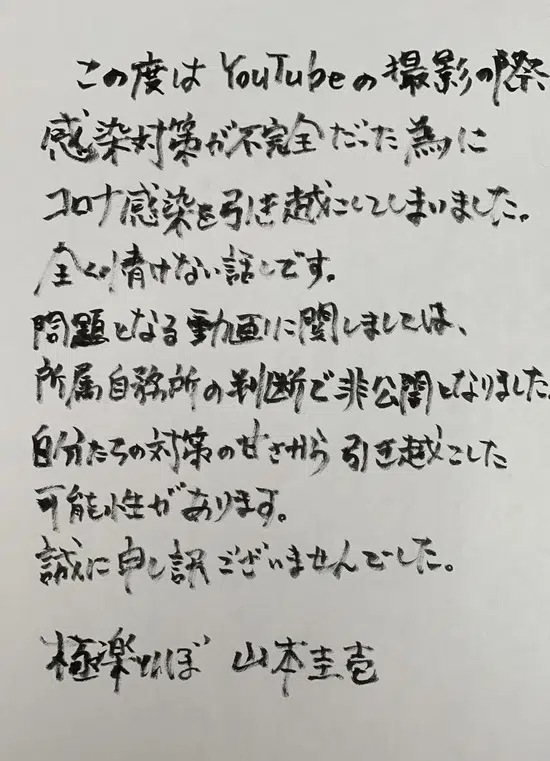 この度はYouTubeの撮影の際
感染対策が不完全だった為に
コロナ感染を引き越こしてしまいました。
全く情けない話しです。
問題となる動画に関しましては、
所属自務所の判断で非公開となりました
自分たちの対策の甘さから引き越こした
可能性があります。
誠に申し訳ございませんでした。
極楽とんぼ 山本圭壱